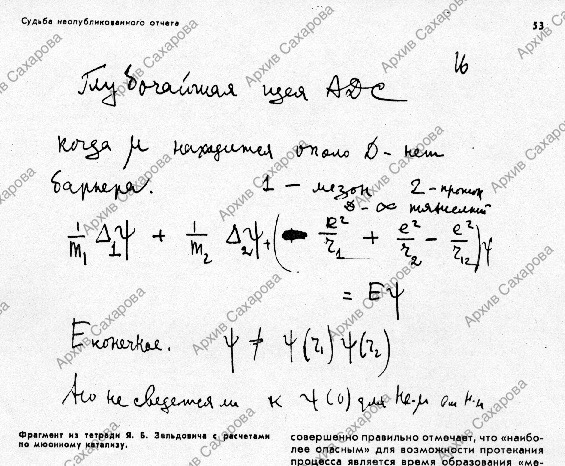 Судьба неопубликованного отчета 53
16
Глубочайшая идея АДС
когда μ находится около D - нет
барьера. 1 - мезон 2 - протон
∞ тяжелый
1/m₁ Δ₁ψ + 1/m₂ Δ₂ψ + (- e²/r₁ + e²/r₂ - e²/r₁₂)ψ
= Eψ
E конечное. ψ ≠ ψ(r₁)ψ(r₂)
не сведется ли к ψ(0) для
Фрагмент из тетради Я. Б. Зельдовича с расчетами
по мюонному катализу.
совершенно правильно отмечает, что «наибо-
лее опасным» для возможности протекания
процесса является время образования «ме-
Архив Сахарова